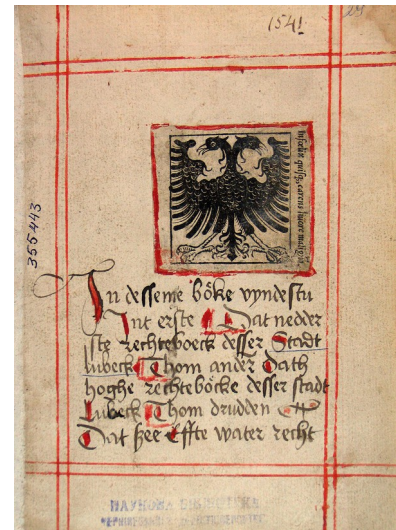 1541
29
355443
In desseme böke vyndestu
Int erste Dat nedder
ste rechteboeck desser Stadt
lubeck Thom ander Dath
hoghe rechteböcke desser stadt
Lubeck Thom drudden
Dat zee Effte water recht
НАУКОВА